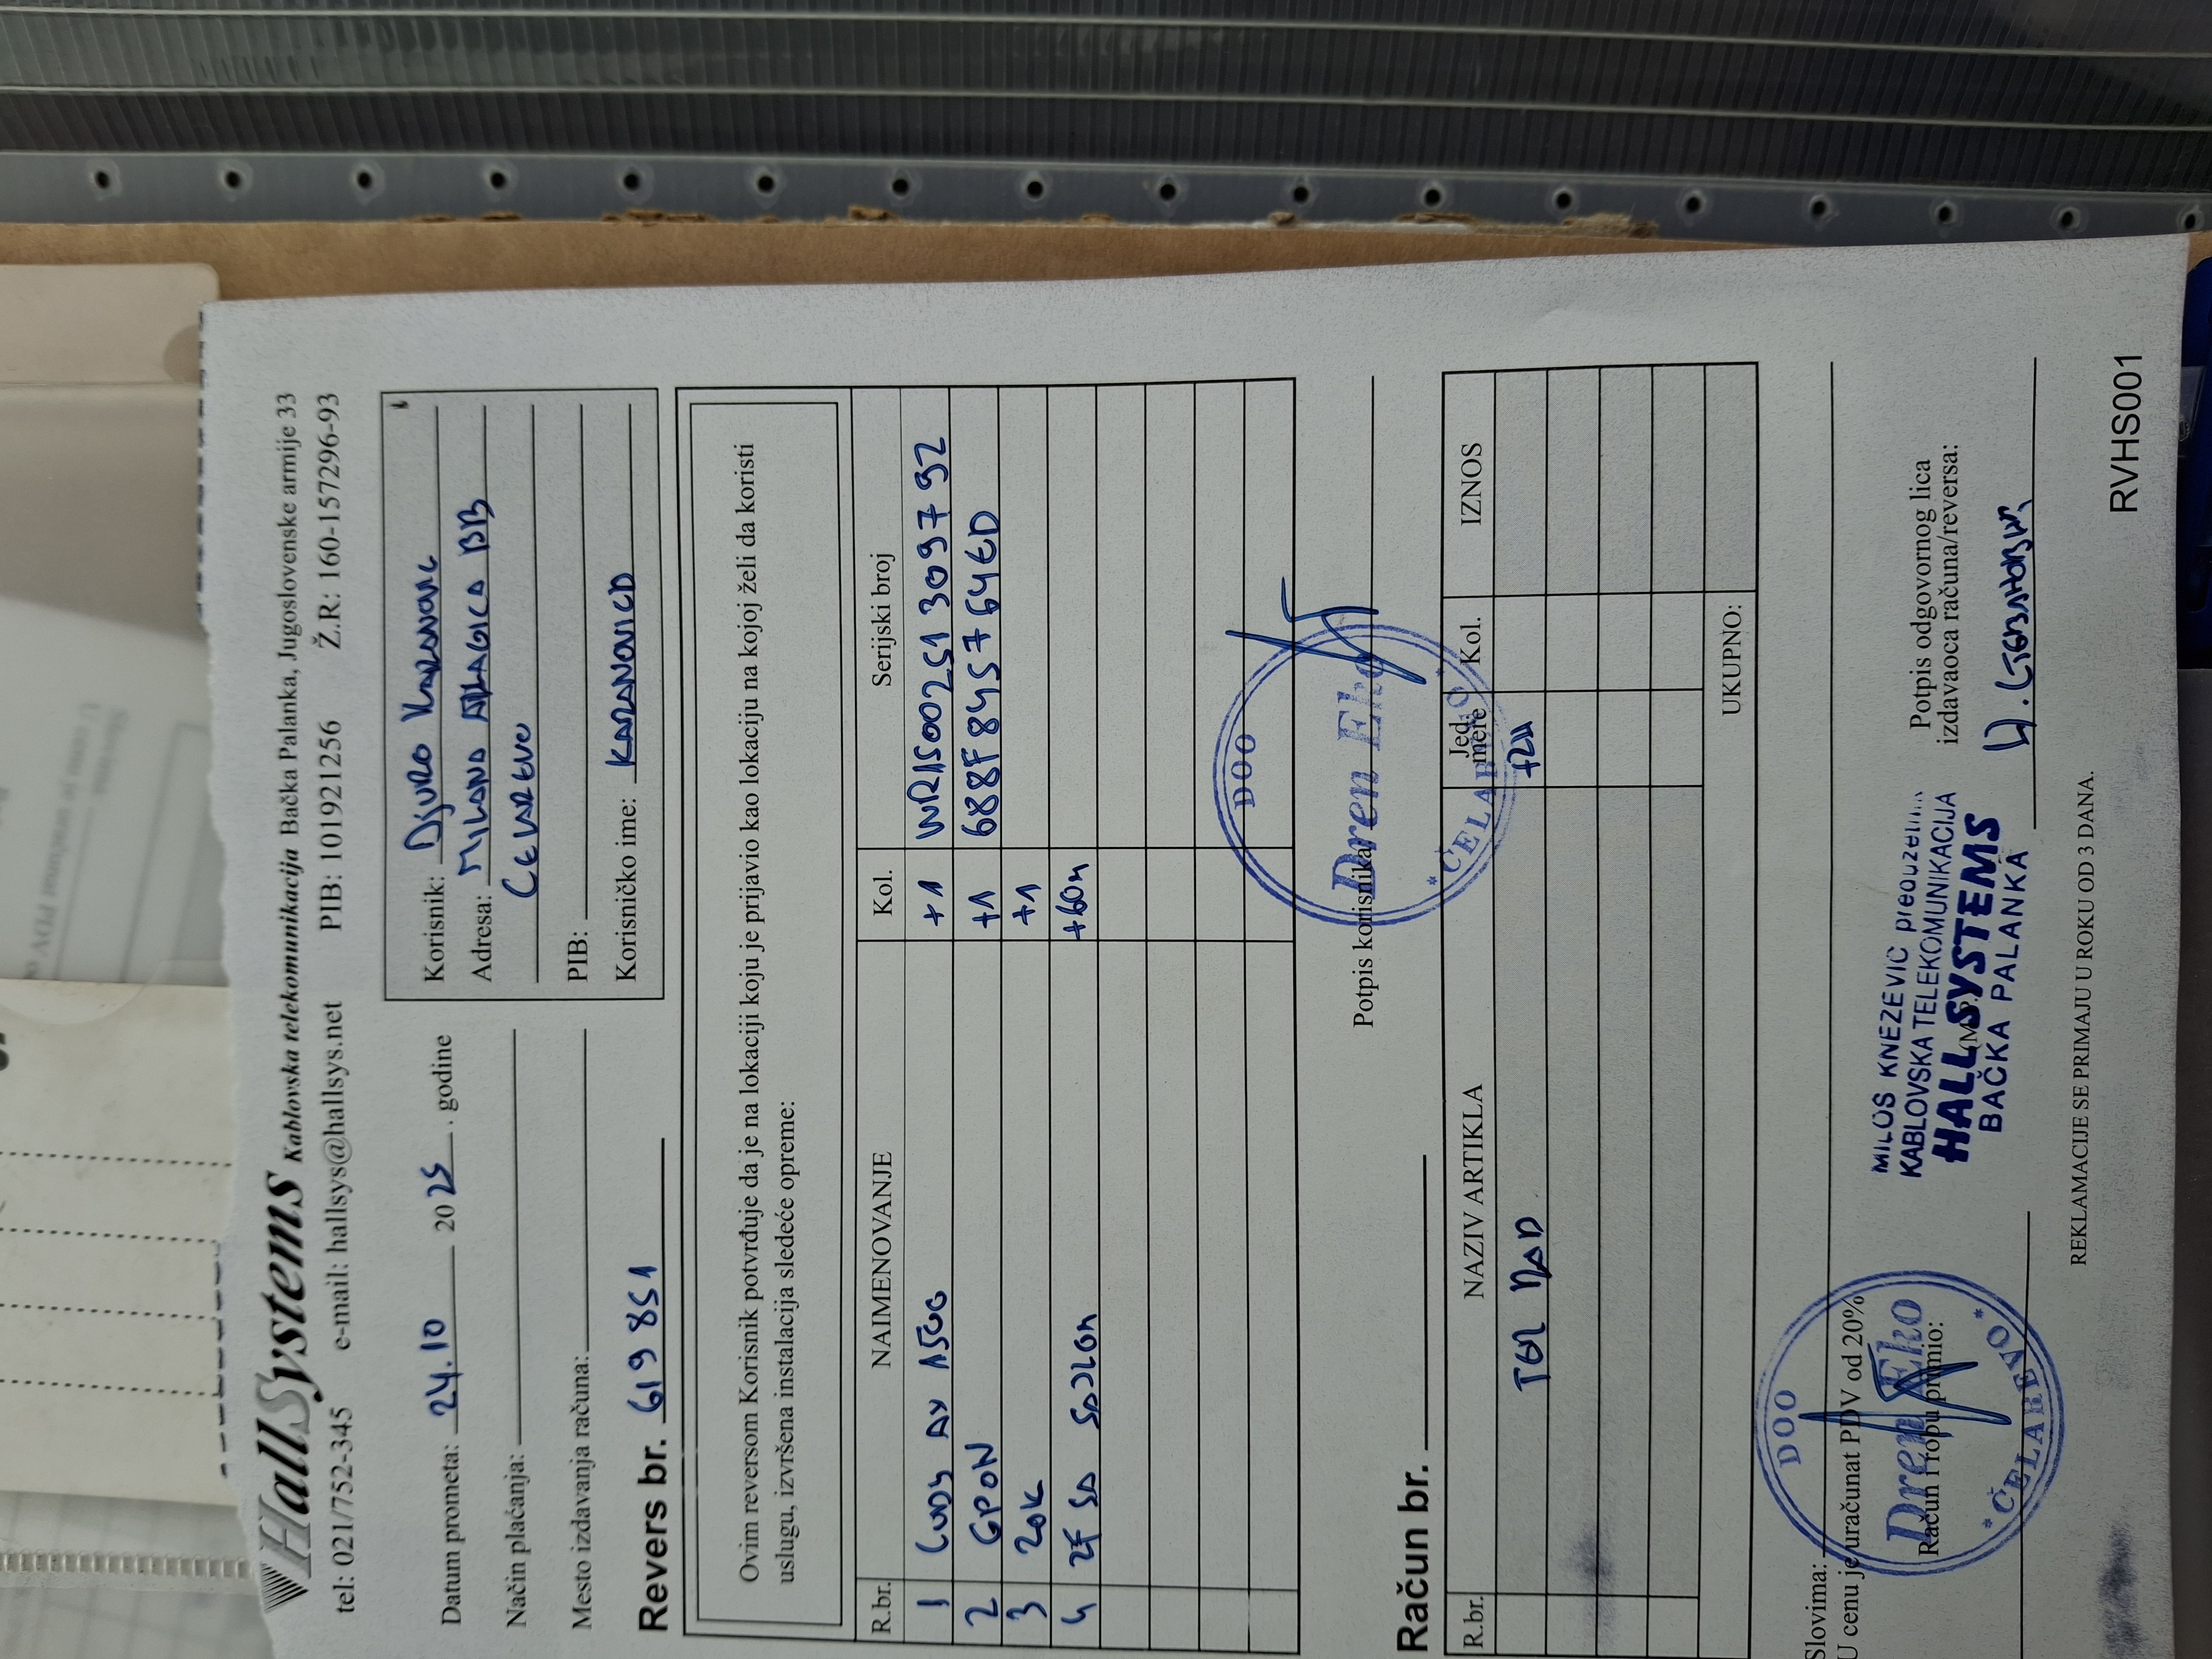 HallSystems Kablovska telekomunikacija Bačka Palanka, Jugoslovenske armije 33
tel: 021/752-345 e-mail: hallsys@hallsys.net PIB: 101921256 Ž.R: 160-157296-93
Datum prometa: 24.10 2025. godine
Način plaćanja:
Mesto izdavanja računa:
Revers br. 619 851
Korisnik: DJURO KARANOVIC
Adresa: MILANA BB
CELAREVO
PIB:
Korisničko ime: KARANOVICD
Ovim reversom Korisnik potvrđuje da je na lokaciji koju je prijavio kao lokaciju na kojoj želi da koristi
uslugu, izvršena instalacija sledeće opreme:
R.br. NAIMENOVANJE Kol. Serijski broj
1 CUDY AX 1500 +1 WR1500251309792
2 GPON +1 688F845764ED
3 ZOK +1
4 2F SA SAJLOM +60m
DOO
Dren Eko
* ČELAREVO *
Potpis korisnika:
Račun br.
R.br. NAZIV ARTIKLA Jed. mere Kol. IZNOS
TER RAD
UKUPNO:
Slovima:
U cenu je uračunat PDV od 20%
Račun i robu primio:
DOO
Dren Eko
* ČELAREVO *
MILOŠ KNEZEVIĆ preduzetnik
KABLOVSKA TELEKOMUNIKACIJA
HALL SYSTEMS
BAČKA PALANKA
(M.P.)
Potpis odgovornog lica
izdavaoca računa/reversa:
REKLAMACIJE SE PRIMAJU U ROKU OD 3 DANA.
RVHS001